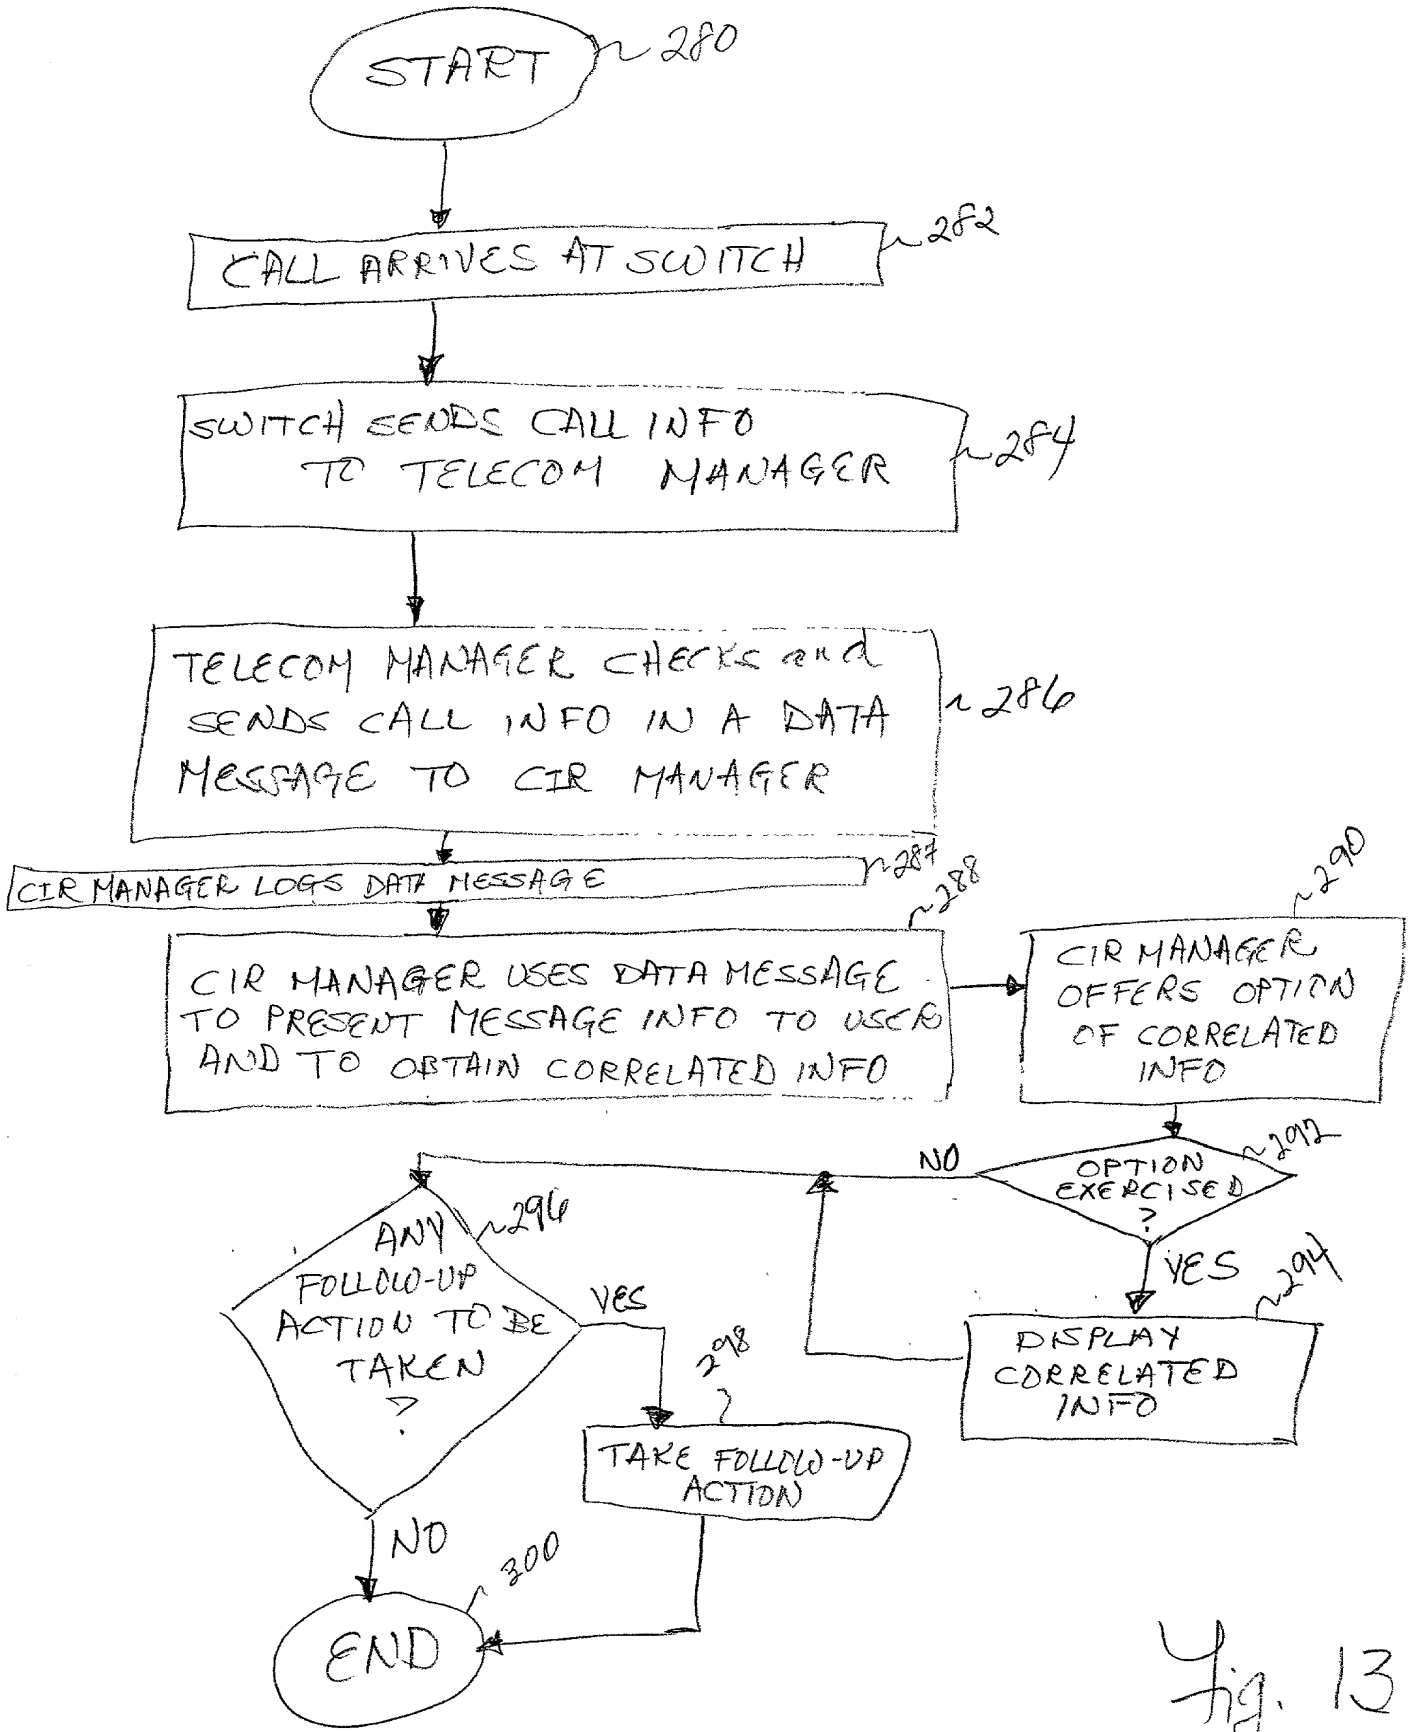 START
280
CALL ARRIVES AT SWITCH
282
SWITCH SENDS CALL INFO
TO TELECOM MANAGER
284
TELECOM MANAGER CHECKS and
SENDS CALL INFO IN A DATA
MESSAGE TO CIR MANAGER
286
CIR MANAGER LOGS DATA MESSAGE
287
288
CIR MANAGER USES DATA MESSAGE
TO PRESENT MESSAGE INFO TO USER
AND TO OBTAIN CORRELATED INFO
290
CIR MANAGER
OFFERS OPTION
OF CORRELATED
INFO
292
OPTION
EXERCISED
?
NO
YES
294
DISPLAY
CORRELATED
INFO
296
ANY
FOLLOW-UP
ACTION TO BE
TAKEN
?
YES
298
TAKE FOLLOW-UP
ACTION
NO
300
END
Fig. 13